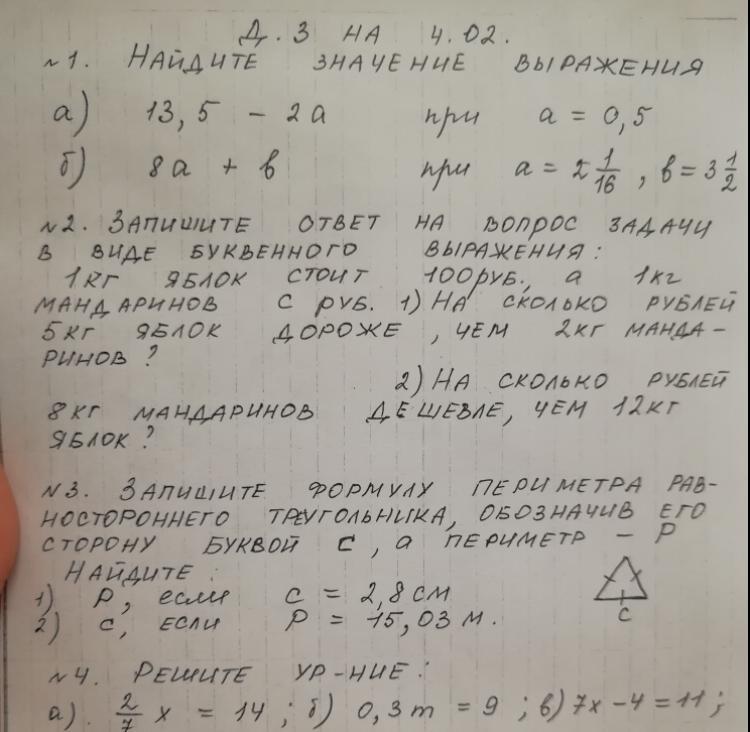 Д.З НА 4.02.
№1. НАЙДИТЕ ЗНАЧЕНИЕ ВЫРАЖЕНИЯ
а) 13,5 - 2а при а = 0,5
б) 8а + в при а = 2 1/16, в = 3 1/2
№2. ЗАПИШИТЕ ОТВЕТ НА ВОПРОС ЗАДАЧИ
В ВИДЕ БУКВЕННОГО ВЫРАЖЕНИЯ:
1кг ЯБЛОК СТОИТ 100руб., а 1кг
МАНДАРИНОВ С РУБ. 1) НА СКОЛЬКО РУБЛЕЙ
5кг ЯБЛОК ДОРОЖЕ, ЧЕМ 2кг МАНДА-
РИНОВ?
2) НА СКОЛЬКО РУБЛЕЙ
8кг МАНДАРИНОВ ДЕШЕВЛЕ, ЧЕМ 12кг
ЯБЛОК?
№3. ЗАПИШИТЕ ФОРМУЛУ ПЕРИМЕТРА РАВ-
НОСТОРОННЕГО ТРЕУГОЛЬНИКА, ОБОЗНАЧИВ ЕГО
СТОРОНУ БУКВОЙ С, а ПЕРИМЕТР - Р
НАЙДИТЕ:
1) Р, если С = 2,8 см
2) С, ЕСЛИ Р = 15,03 м.
С
№4. РЕШИТЕ УР-НИЕ:
а). 2/7 х = 14; б) 0,3m = 9; в) 7х - 4 = 11;